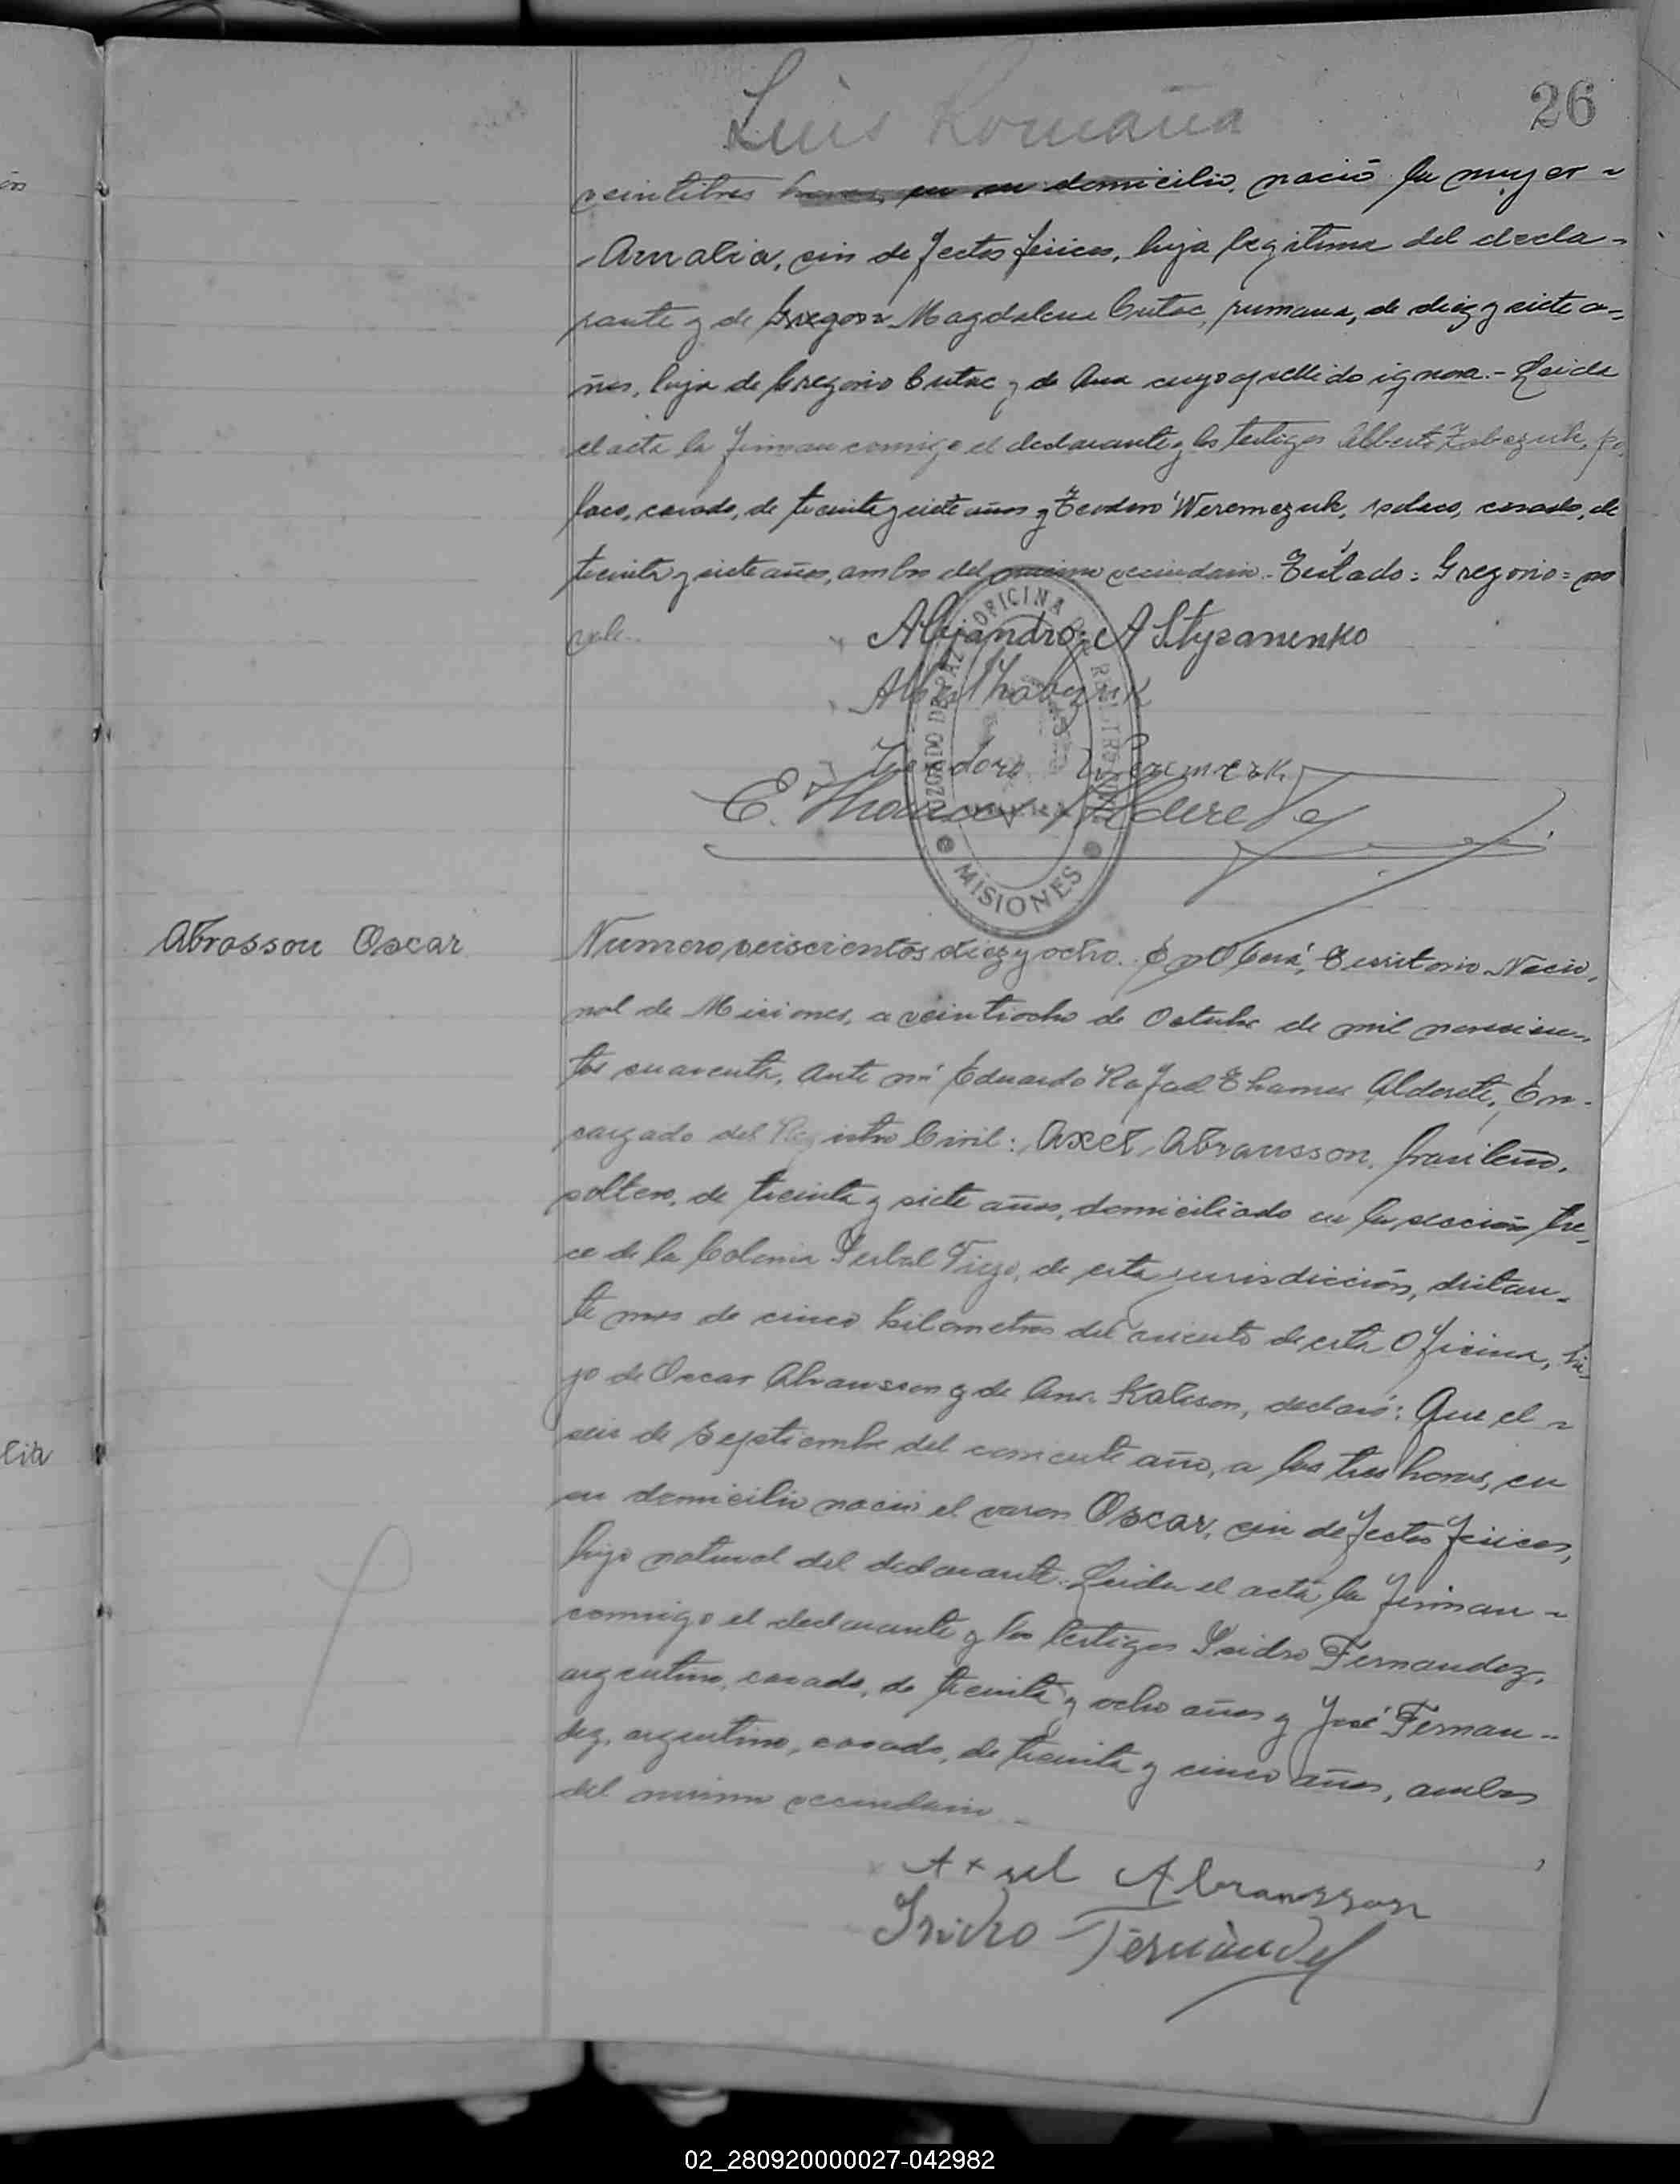 Luis Romaña
26
veintitres horas, en su domicilio, nació la mujer -
Amalia, sin defectos fisicos, hija legitima del decla-
rante y de Gregoria Magdalena Cutac, rumana, de diez y siete a-
ños, hija de Gregorio Cutac y de Ana cuyo apellido ignora.- Leida
el acta la firman conmigo el declarante y los testigos Alberto po-
laco, casado, de treinta y siete años y Teodoro Weremczuk, polaco, casado, de
treinta y siete años, ambos del mismo vecindario.- Testado: Gregorio = no
vale.
Alejandro A Styzanenko
Teodoro Weremczuk
E. Thames Alderete
JUZGADO DE PAZ OFICINA DEL REGISTRO CIVIL
MISIONES
Abrasson Oscar
Numero seiscientos diez y ocho. En Oberá, Territorio Nacio-
nal de Misiones, a veintiocho de Octubre de mil novecien-
tos cuarenta, ante mi Eduardo Rafael Thames Alderete, En-
cargado del Registro Civil: Axel Abransson, brasileño,
soltero, de treinta y siete años, domiciliado en la sección tre-
ce de la Colonia Yerbal Viejo, de esta jurisdicción, distan-
te mas de cinco kilometros del asiento de esta Oficina, hi-
jo de Oscar Abransson y de Ana Kalsson, declaró: Que el -
seis de Septiembre del corriente año, a las tres horas, en
su domicilio nació el varon Oscar, sin defectos fisicos,
hijo natural del declarante. Leida el acta la firman -
conmigo el declarante y los testigos Isidro Fernandez,
argentino, casado, de treinta y ocho años y José Fernan-
dez, argentino, casado, de treinta y cinco años, ambos
del mismo vecindario.-
Axsel Abransson
Isidro Fernández
lia
02_280920000027-042982